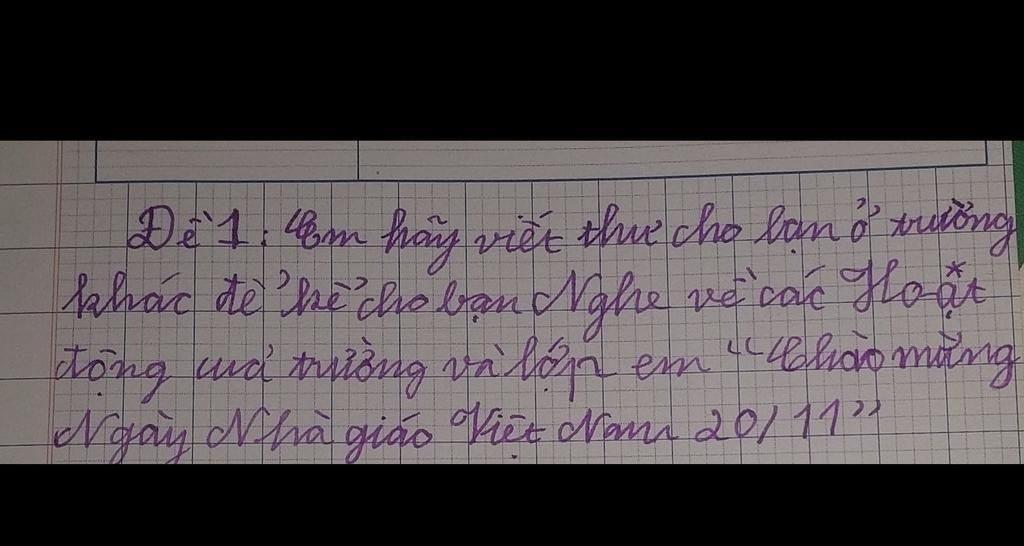 Đề 1: Em hãy viết thư cho bạn ở trường
khác để kể cho bạn Nghe về các Hoạt
động của trường và lớp em "Chào mừng
Ngày Nhà giáo Việt Nam 20/11"